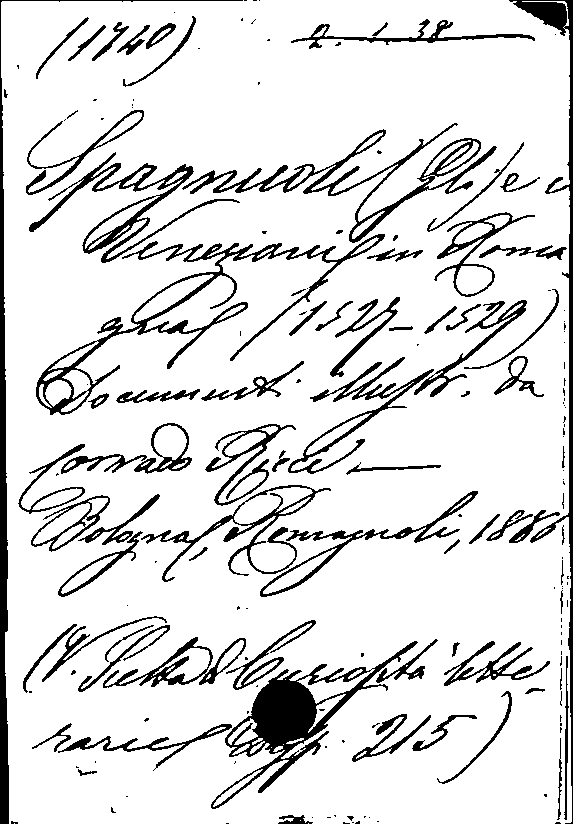 (1740) 2. 1. 38
Spagnuoli (Gli) e i
Veneziani in Roma
gna (1527-1529)
Documenti illustr. da
Corrado Ricci —
Bologna, Romagnoli, 1886
(V. Scelta di Curiosità lette-
rarie Disp. 215)